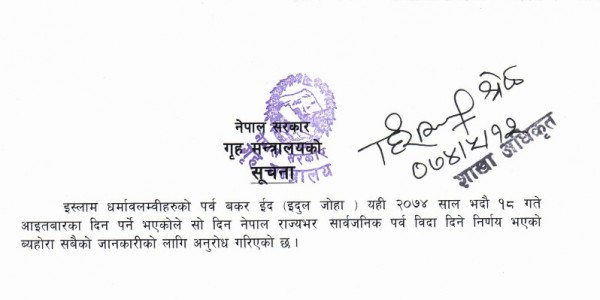 नेपाल सरकार
गृह मन्त्रालयको
सूचना
श्रेष्ठ
०७४/५/१२
शाखा अधिकृत
इस्लाम धर्मावलम्वीहरुको पर्व बकर ईद (इदुल जोहा ) यही २०७४ साल भदौ १८ गते
आइतबारका दिन पर्ने भएकोले सो दिन नेपाल राज्यभर सार्वजनिक पर्व विदा दिने निर्णय भएको
व्यहोरा सबैको जानकारीको लागि अनुरोध गरिएको छ ।